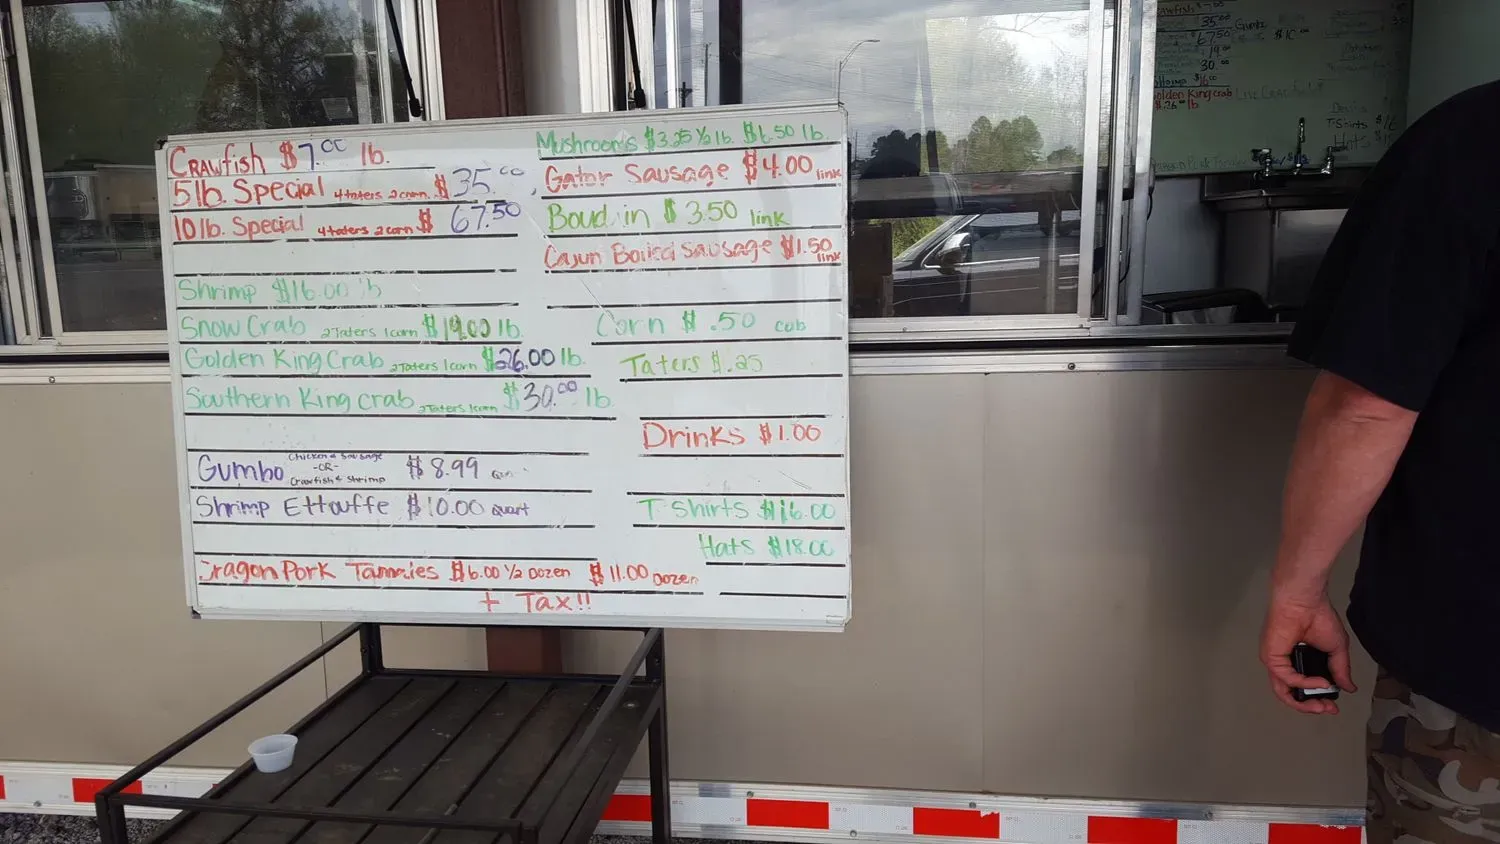 Crawfish $7.00 lb.
5lb. Special 4 taters 2 corn. $35.00
10lb. Special 4 taters 2 corn $67.50
Shrimp $16.00 lb
Snow Crab 2 Taters 1 corn $19.00 lb.
Golden King Crab 2 Taters 1 corn $26.00 lb.
Southern King Crab 2 Taters 1 corn $30.00 lb.
Gumbo Chicken & Sausage
-OR-
Crawfish & Shrimp $8.99
Shrimp Ettouffe $10.00 quart
Dragon Pork Tamales $6.00 1/2 Dozen $11.00 Dozen
+ Tax!!
Mushrooms $3.25 1/2 lb. $6.50 lb.
Gator Sausage $4.00 link
Boudin $3.50 link
Cajun Boiled Sausage $1.50 link
Corn $.50 cob
Taters $.25
Drinks $1.00
T-Shirts $16.00
Hats $18.00
35.00 Gumbo
67.50 $10.00
19.00
30.00
$16.00
Golden King Crab
$26.00 lb
T-Shirts
Hats